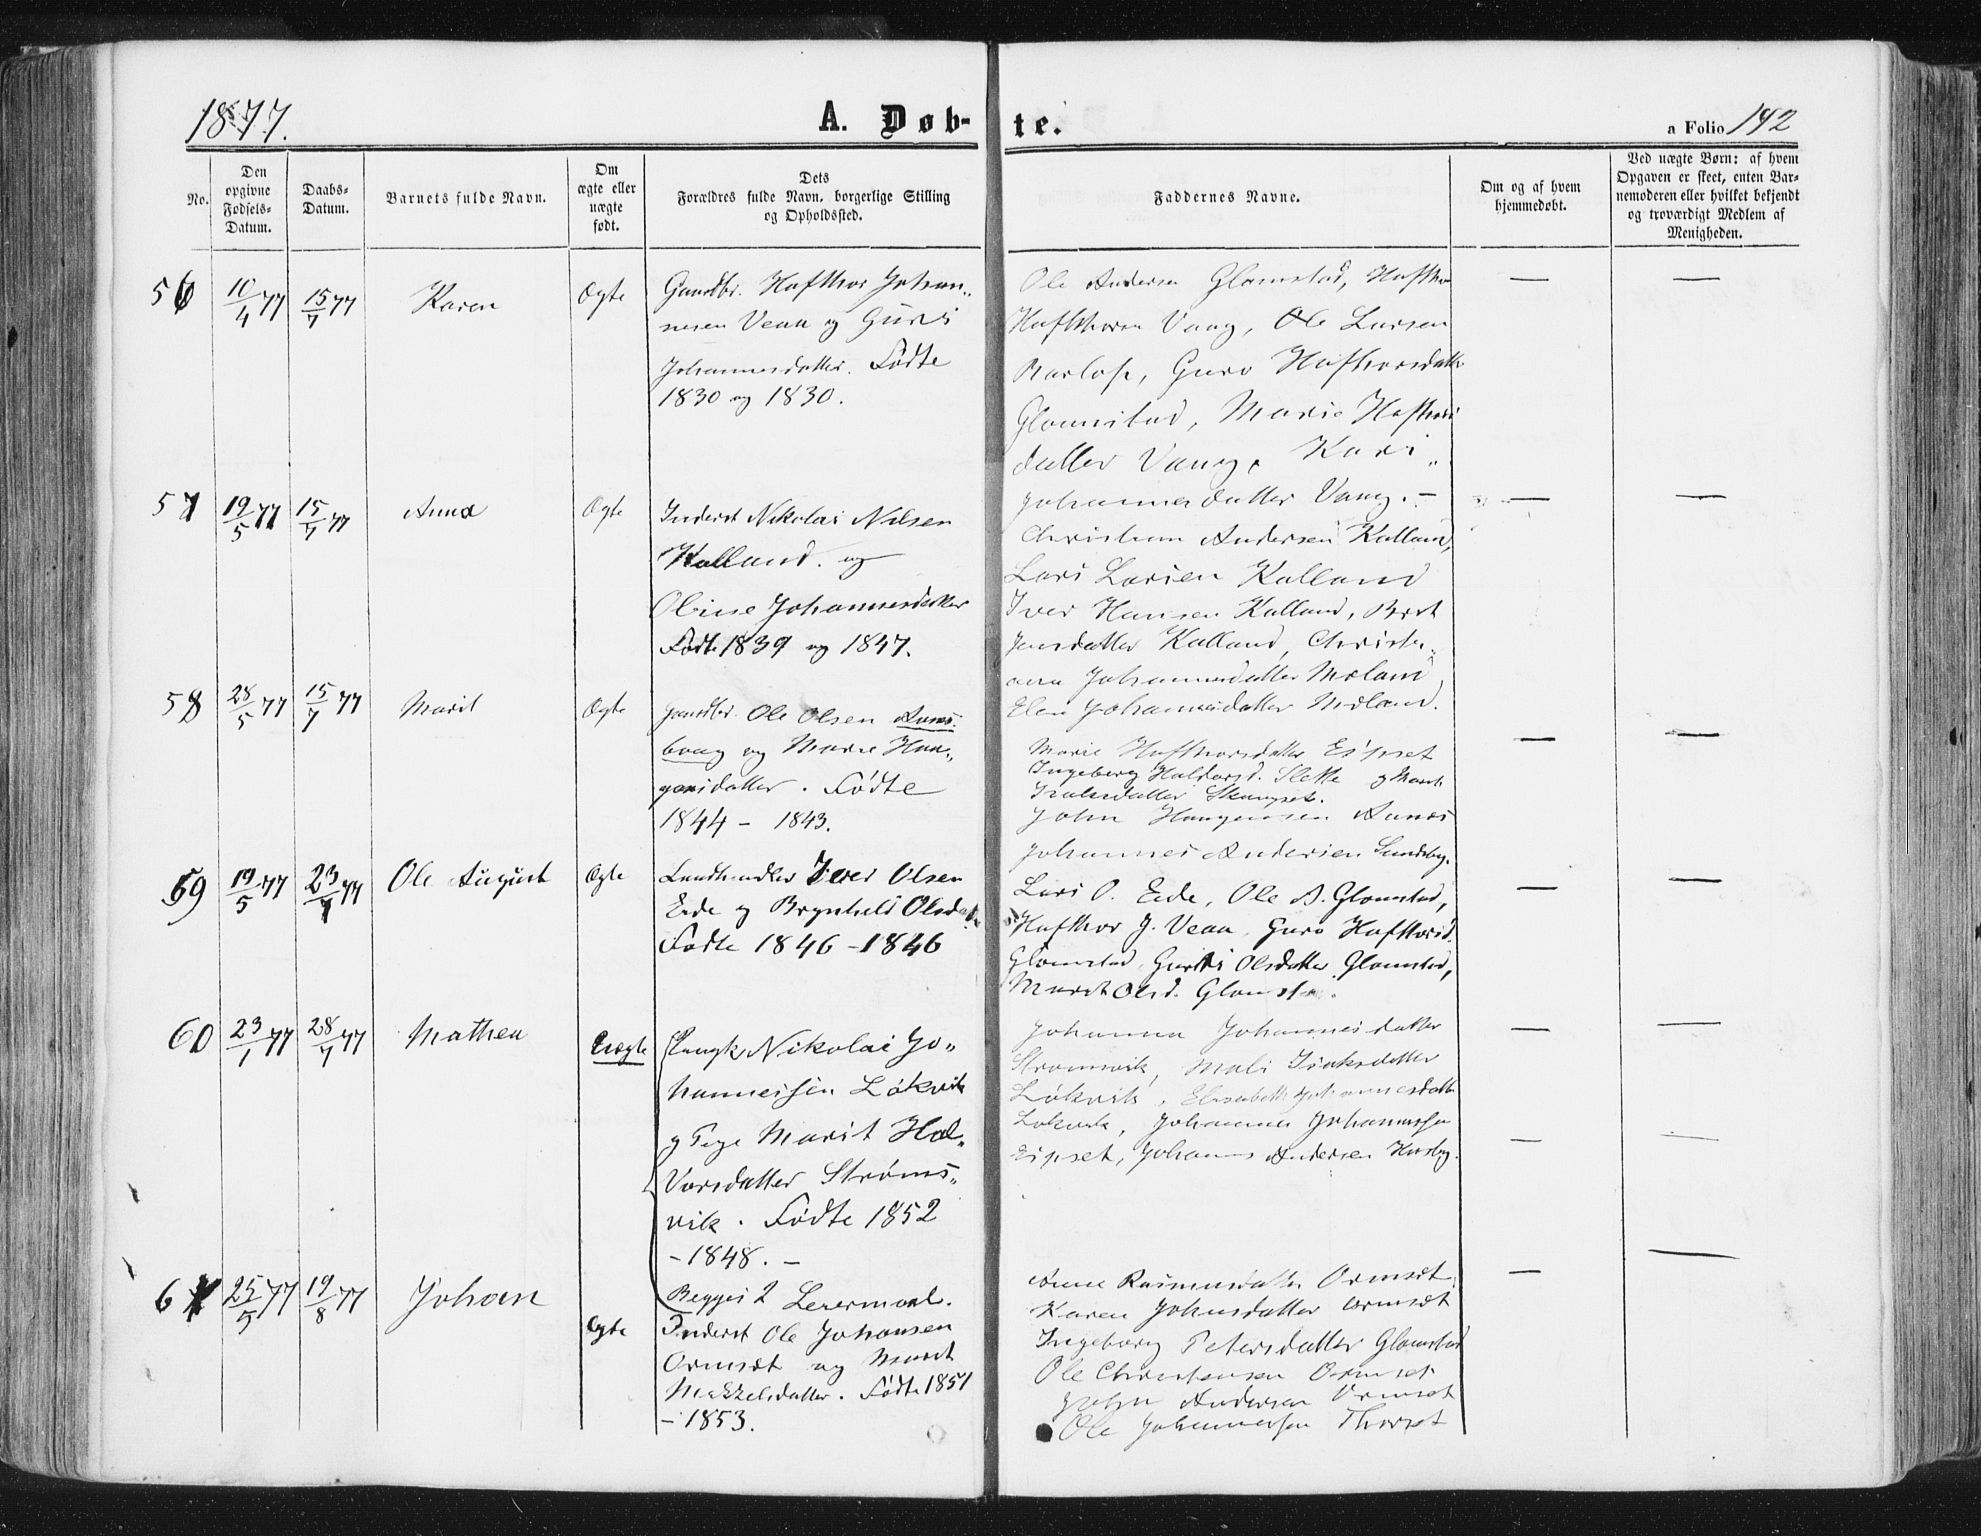 1877.
A. Døb-
te.
a Folio 142
No.
Den opgivne Fødsels-Datum.
Daabs-Datum.
Barnets fulde Navn.
Om ægte eller uægte født.
Dets Forældres fulde Navn, borgerlige Stilling og Opholdssted.
Faddernes Navne.
Om og af hvem hjemmedøbt.
Ved uægte Børn: af hvem Opgaven er skeet, enten Barnemoderen eller hvilket bekjendt og troværdigt Medlem af Menigheden.
56 10/4 77 15/7 77 Karen Ægte
Gaardbr. Hafthor Johan„
nesen Veau og Guri
Johannesdatter. Fødte
1830 og 1830.
Ole Andersen Glamstad, Hafthor
Hafthoren Vaag, Ole Larsen
Guro Hafthorsdatter
Glomstad, Marie Hafthors
datter Vaag, Kari„
Johannesdatter Vaag. –
57 19/5 77 15/7 77 Anna Ægte
Inderst Nikolai Nilsen
Kalland og
Oline Johannesdatter
Fødte 1839 og 1847.
Christian Andersen Kalland,
Lars Larsen Kalland
Iver Hansen Kalland, Berit
Jensdatter Kalland, Christi„
ana Johannesdatter Moland
Elen Johannesdatter Moland.
58 28/5 77 15/7 77 Marit Ægte
Gaardbr. Ole Olsen Aunes
vaag og Marie Haa„
gensdatter. Fødte
1844 – 1843.
Marie Hafthorsdatter Eipset
Ingeborg Haldorsd. Slette og Marit
Isaksdatter
John Haagensen Aunes
Johannes Andersen Sundby.
59 19/5 77 23/7 77 Ole August Ægte
Landhandler Iver Olsen
Eide og Brynhild Olsd.
Fødte 1846 – 1846
Lars O. Eide, Ole A. Glomstad,
Hafthor J. Veau, Guro Hafthorsd.
Glomstad, Guri Olsdatter Glomstad,
Marit Olsd. Glomstad.
60 23/1 77 28/7 77 Mathea Uægte
Ungk. Nikolai Jo„
hannessen Løkvik
og Pige Marit Hal„
vorsdatter Strøms„
vik. Fødte 1852
– 1848. –
Begges 2 Leiermaal.
Johanna Johannesdatter
Strømsvik, Mali Isaksdatter
Løkvik, Elisabeth Johannesdatter
Løkvik, Johannes Johannessen
Eipset, Johannes Andersen Husby.
61 25/5 77 19/8 77 Johan Ægte
Inderst Ole Johansen
Ormset og Marit
Mikkelsdatter. Fødte 1851
– 1853.
Anne Rasmusdatter Ormset
Karen Johnsdatter Ormset
Ingeborg Petersdatter Glomstad
Ole Christensen Ormset
John Andersen Ormset
Ole Johannessen Thorset